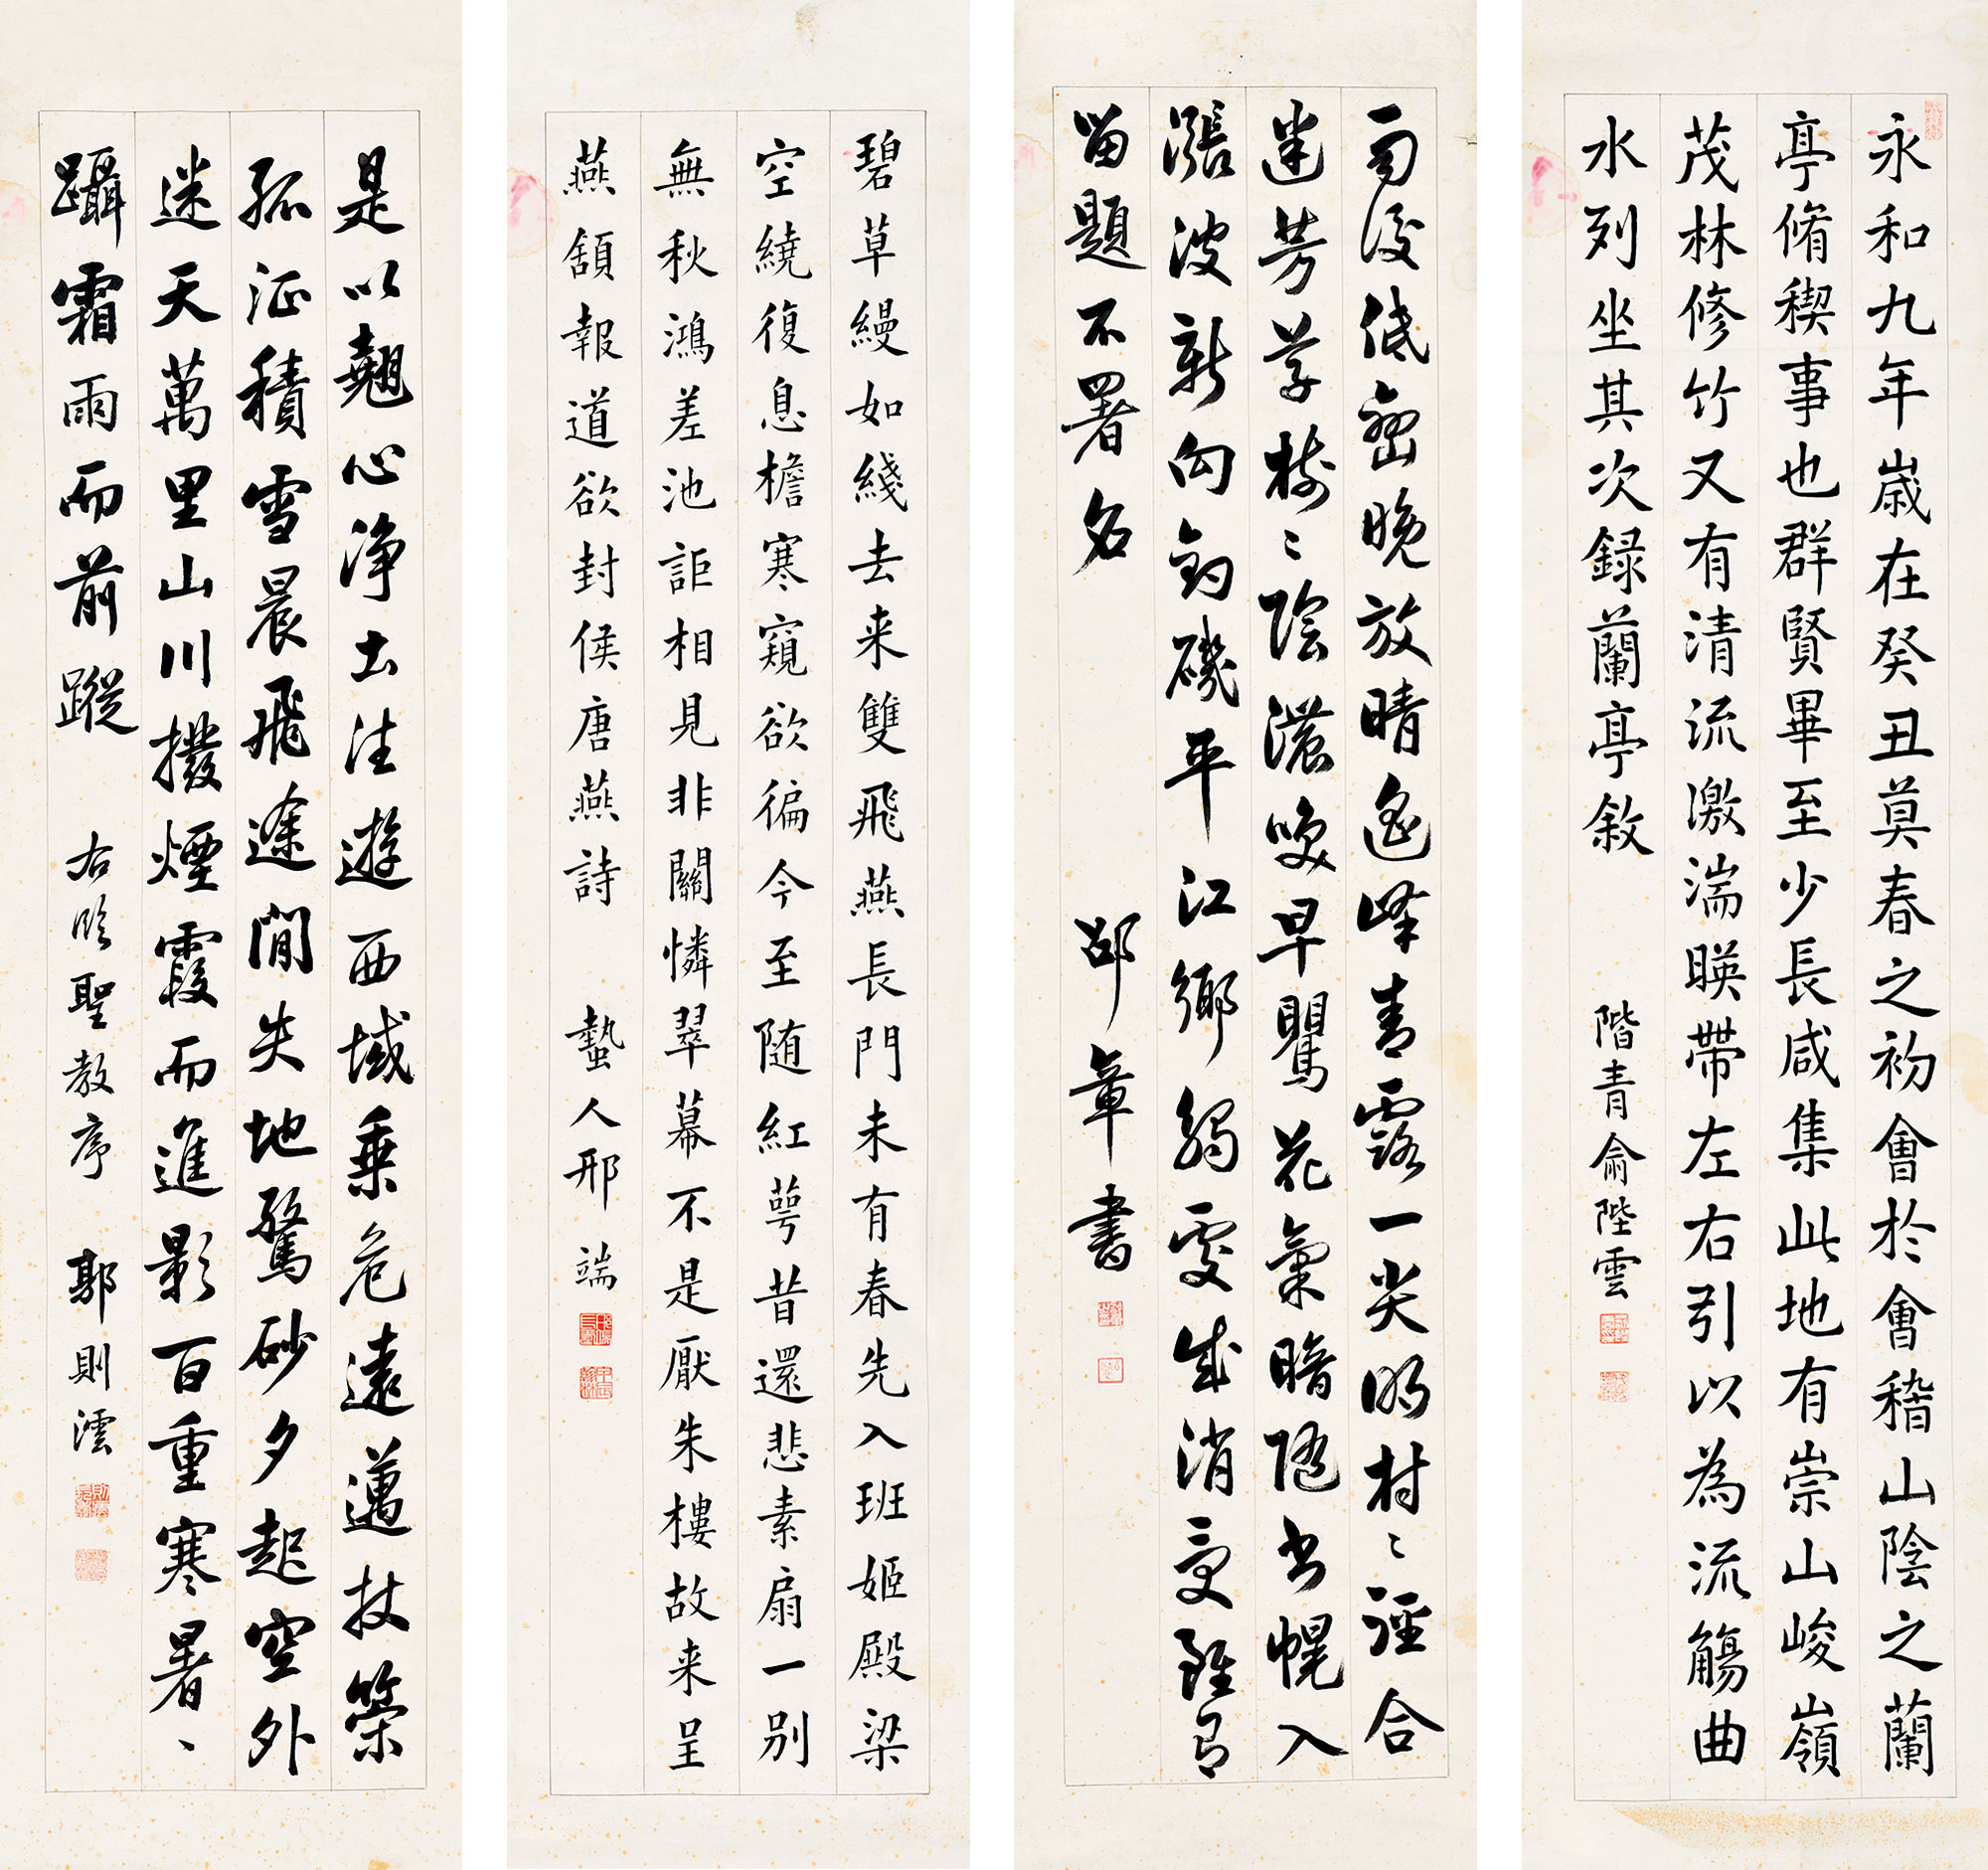 永和九年歲在癸丑莫春之初會於會稽山陰之蘭
亭脩稧事也群賢畢至少長咸集此地有崇山峻嶺
茂林修竹又有清流激湍暎帶左右引以為流觴曲
水列坐其次録蘭亭敘 階青俞陛雲
雨後低晚放晴遙峰青露一尖明村〻逕合
迷芳草樹〻陰濃喚早鶯花氣暗隨書幌入
漲波新向釣磯平江鄉觸處成消受雖有
留題不署名 邵章書
碧草縵如綫去来雙飛燕長門未有春先入班姬殿梁
空繞復息檐寒窺欲徧今至随紅萼昔還悲素扇一別
無秋鴻差池詎相見非關憐翠幕不是厭朱樓故来呈
燕頷報道欲封侯唐燕詩 蟄人邢端
是以翹心淨土往遊西域乗危遠邁杖策
孤征積雪晨飛途閒失地驚砂夕起空外
迷天萬里山川撥煙霞而進影百重寒暑、
躡霜雨而前蹤 右臨聖教序 郭則澐